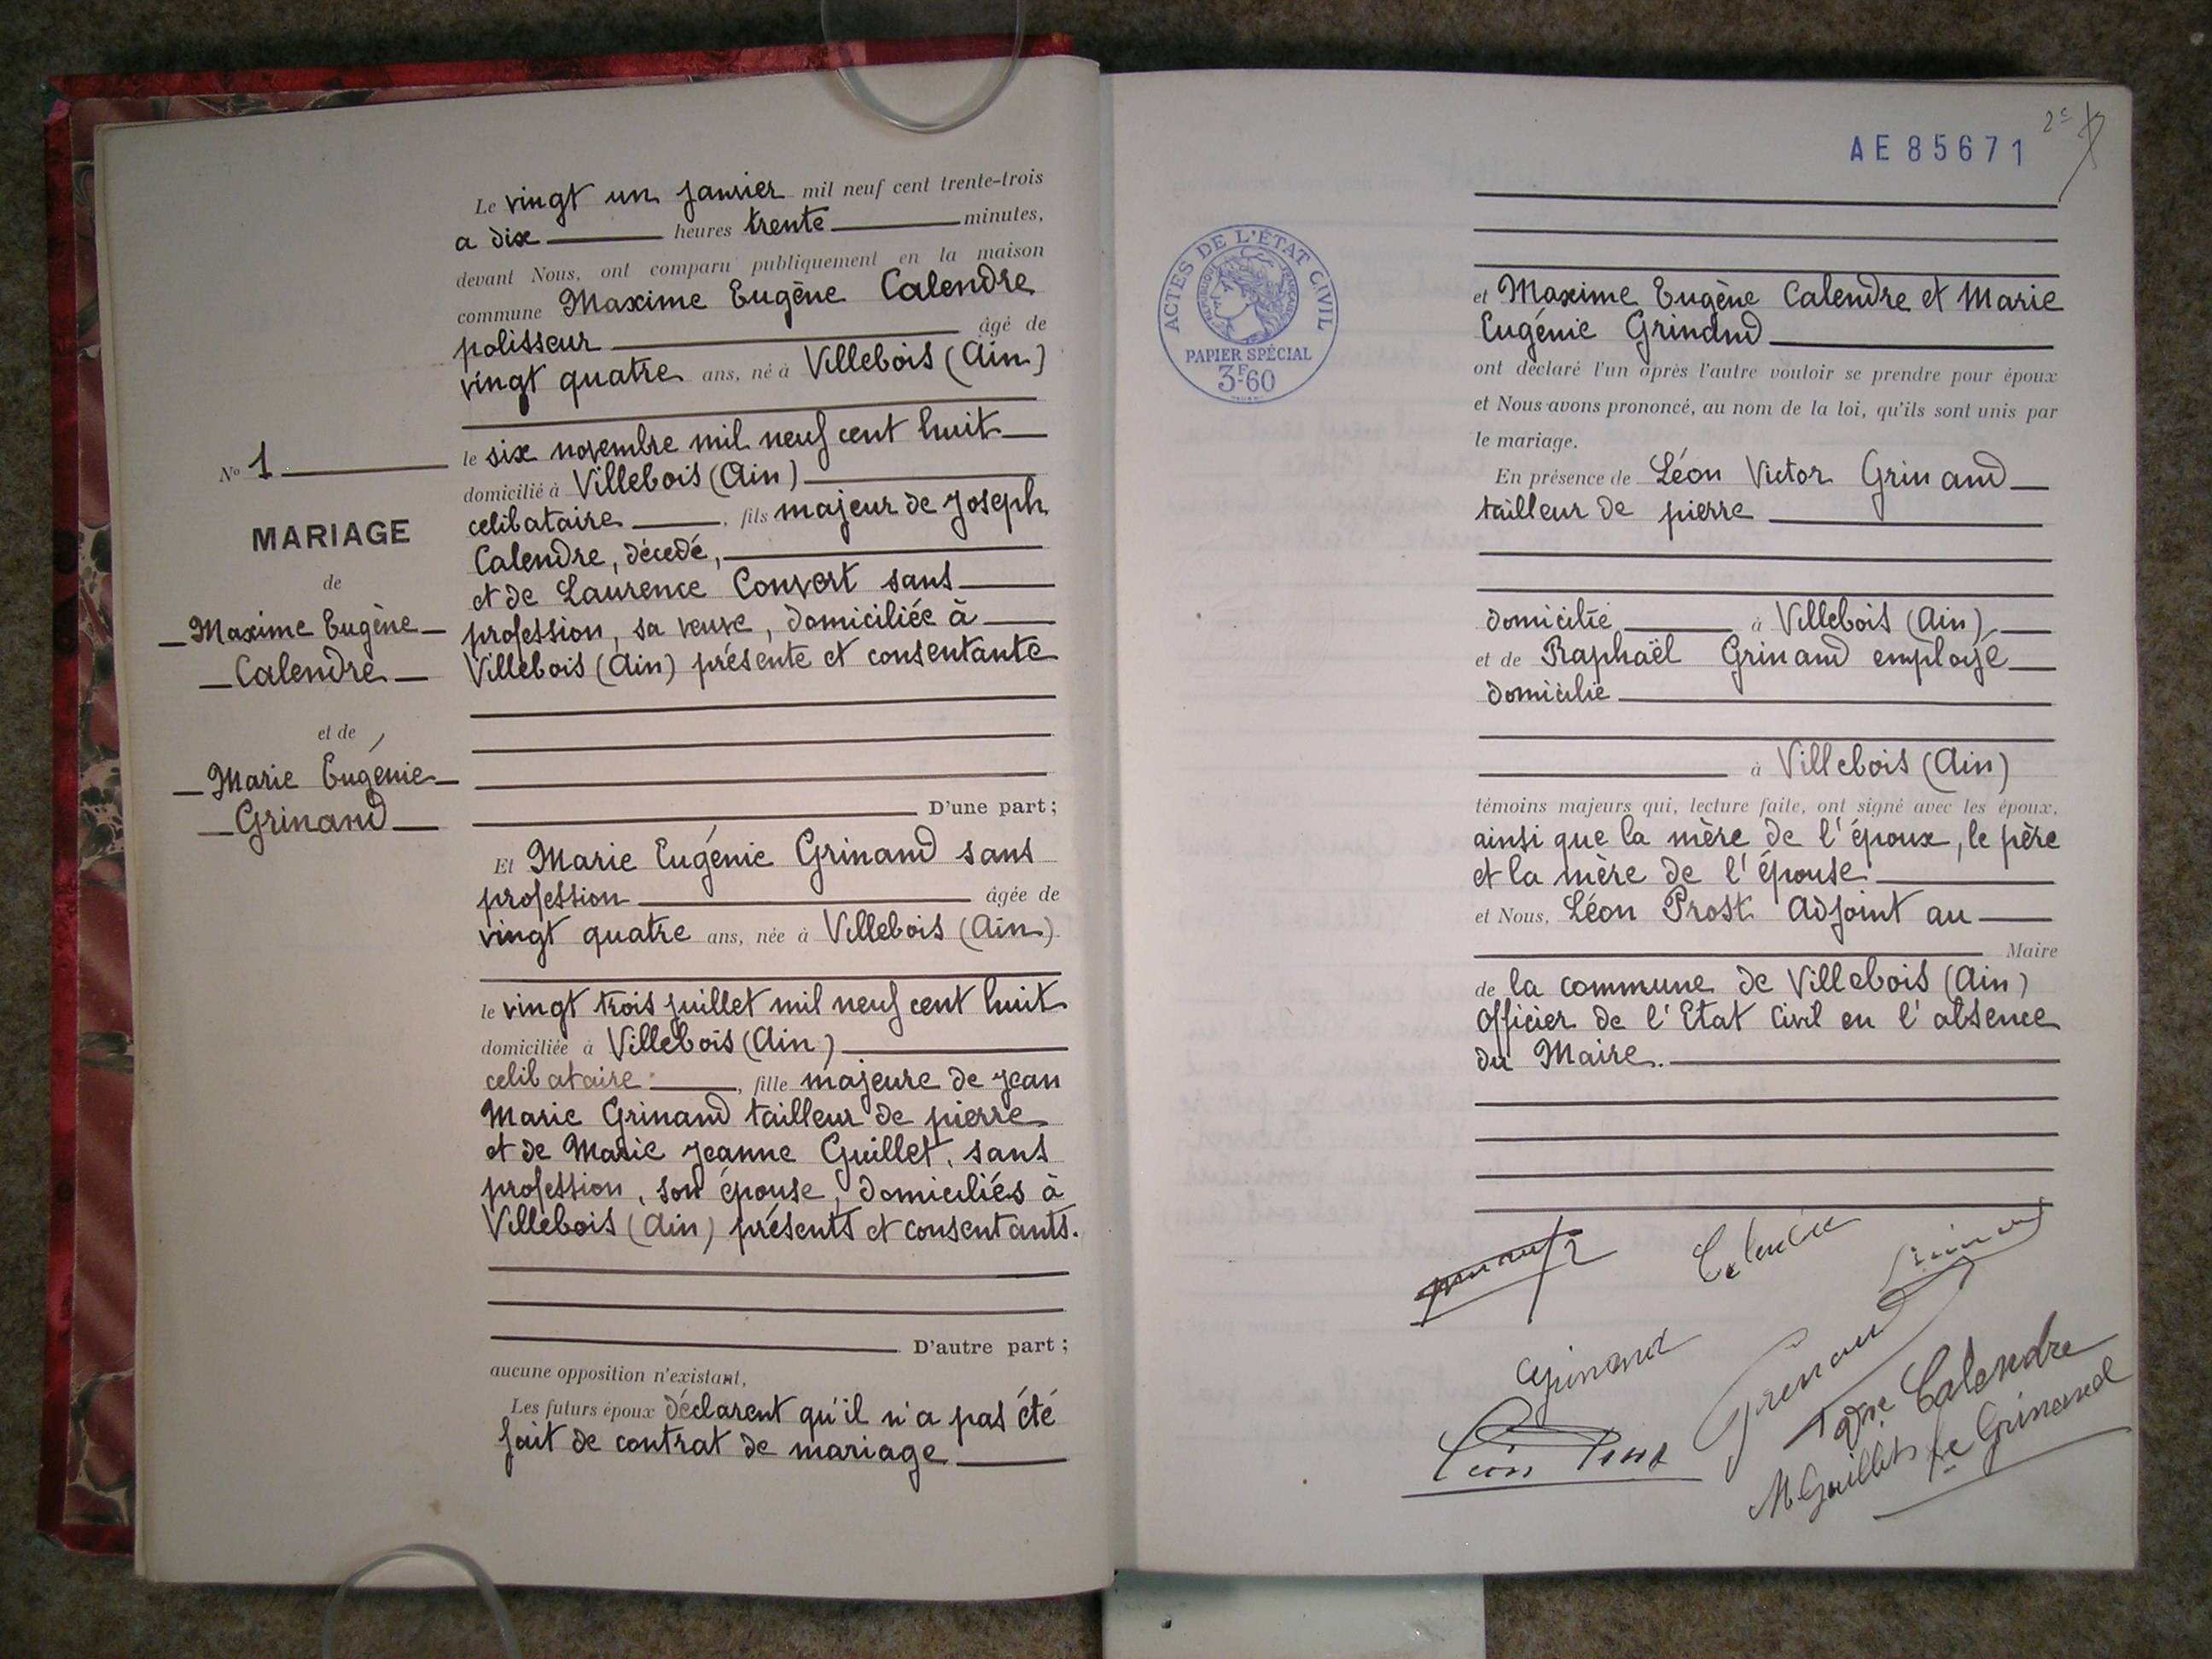 Le vingt un janvier mil neuf cent trente-trois
a dix heures trente minutes,
devant Nous, ont comparu publiquement en la maison
commune Maxime Eugène Calendre
polisseur âgé de
vingt quatre ans, né à Villebois (Ain)
le six novembre mil neuf cent huit
domicilié à Villebois (Ain)
celibataire, fils majeur de Joseph
Calendre, décedé,
et de Laurence Convert sans
profession, sa veuve, domiciliée à
Villebois (Ain) présente et consentante
D'une part;
Et Marie Eugénie Grinand sans
profession âgée de
vingt quatre ans, née à Villebois (Ain)
le vingt trois juillet mil neuf cent huit
domiciliée à Villebois (Ain)
celibataire, fille majeure de Jean
Marie Grinand tailleur de pierre
et de Marie Jeanne Guillet, sans
profession, son épouse, domiciliés à
Villebois (Ain) présents et consentants.
D'autre part;
aucune opposition n'existant,
Les futurs époux déclarent qu'il n'a pas été
fait de contrat de mariage
No 1
MARIAGE
de
Maxime Eugène
Calendre
et de
Marie Eugénie
Grinand
AE 85671
2e
ACTES DE L'ÉTAT CIVIL
RÉPUBLIQUE FRANÇAISE
PAPIER SPÉCIAL
3F60
et Maxime Eugène Calendre et Marie
Eugénie Grinand
ont déclaré l'un après l'autre vouloir se prendre pour époux
et Nous avons prononcé, au nom de la loi, qu'ils sont unis par
le mariage.
En présence de Léon Victor Grinand
tailleur de pierre
domicilié à Villebois (Ain)
et de Raphaël Grinand employé
domicilié
à Villebois (Ain)
témoins majeurs qui, lecture faite, ont signé avec les époux,
ainsi que la mère de l'époux, le père
et la mère de l'épouse
et Nous, Léon Prost Adjoint au
Maire
de la commune de Villebois (Ain)
Officier de l'Etat Civil en l'absence
du Maire.
Calendre
Grinand
Grinand
Grinand
Léon Prost
Vve Calendre
M Guillet fe Grinand